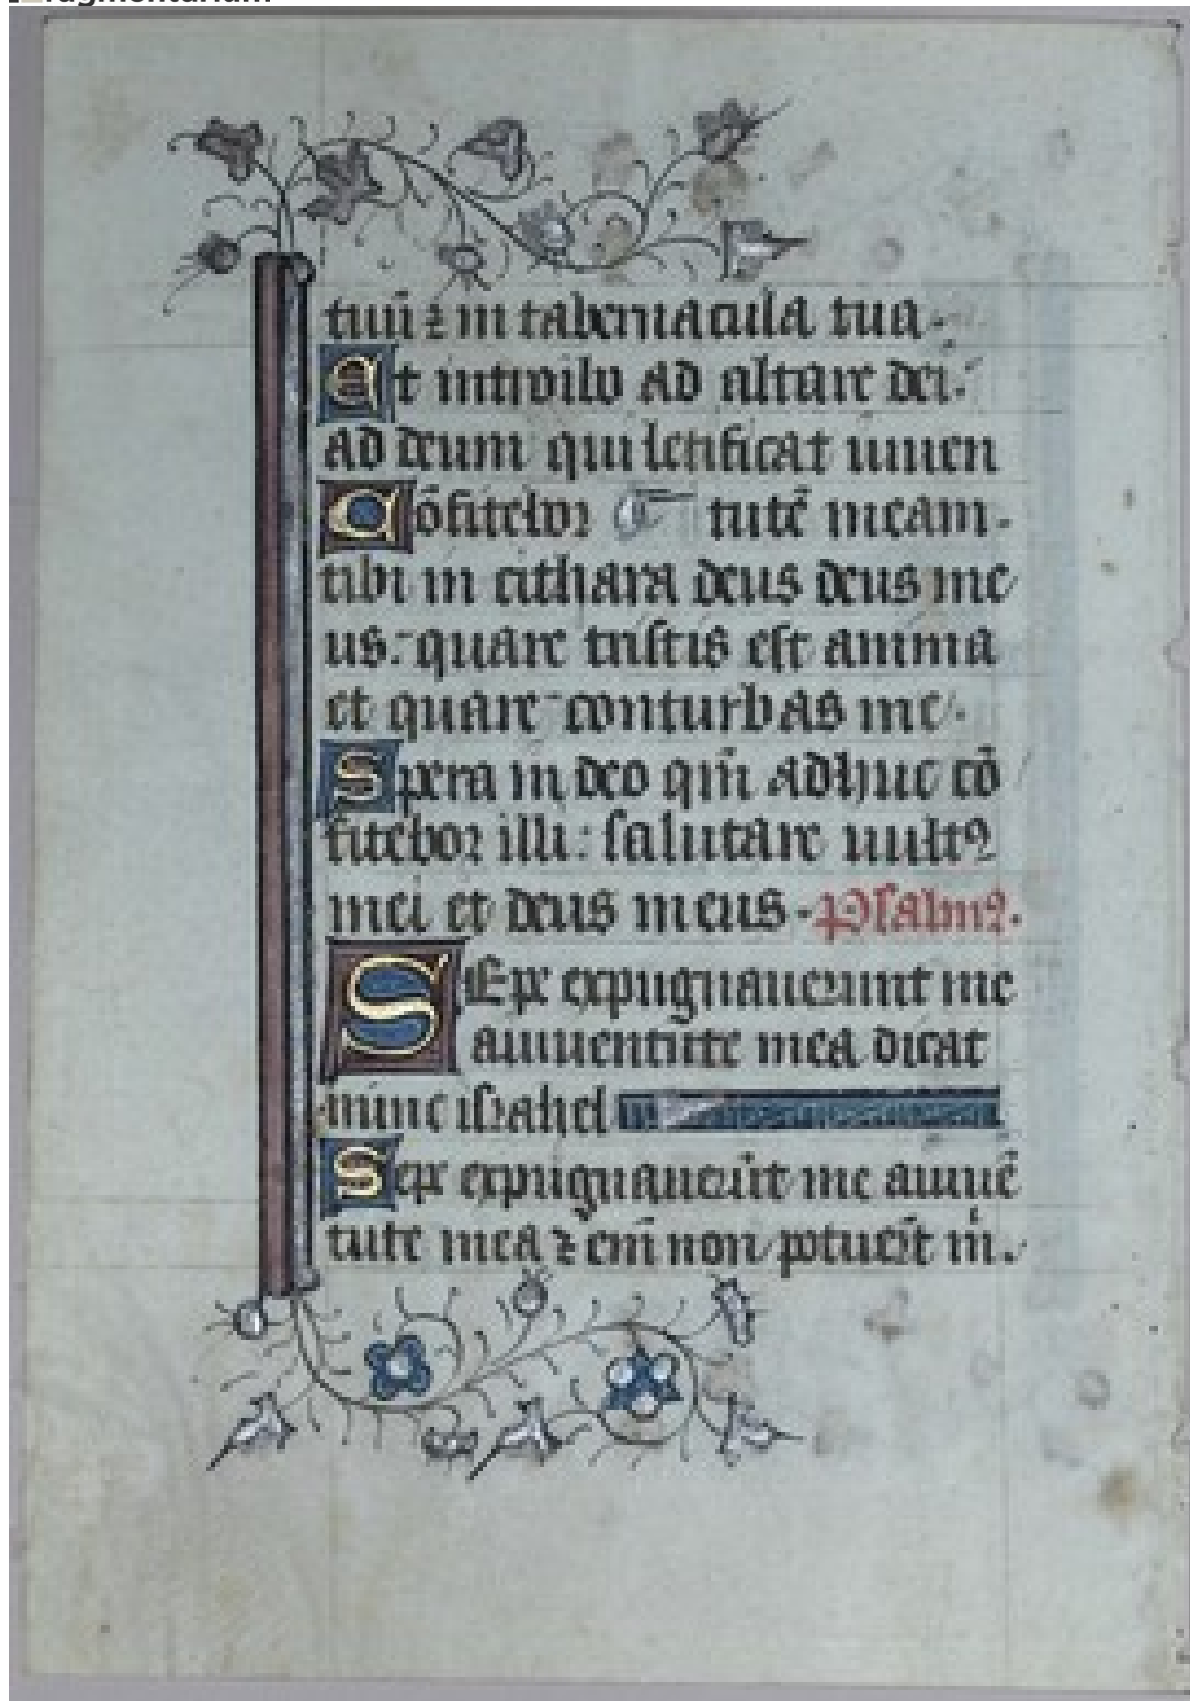 Fragmentarium
tuū ⁊ in tabernacula tua.
Et introibo ad altare dei.
ad deum qui letificat iuuen
Cōfitebor tutē meam.
tibi in cithara deus deus me
us: quare tristis est anima
et quare conturbas me.
Spera in deo qm̄ adhuc cō
fitebor illi: salutare uultꝰ
mei et deus meus. Psalmꝰ.
SEpe expugnauerunt me
a iuuentute mea dicat
nunc israhel
Sepe expugnauerūt me a iuuē
tute mea ⁊ em̄ non potuerūt m̄.